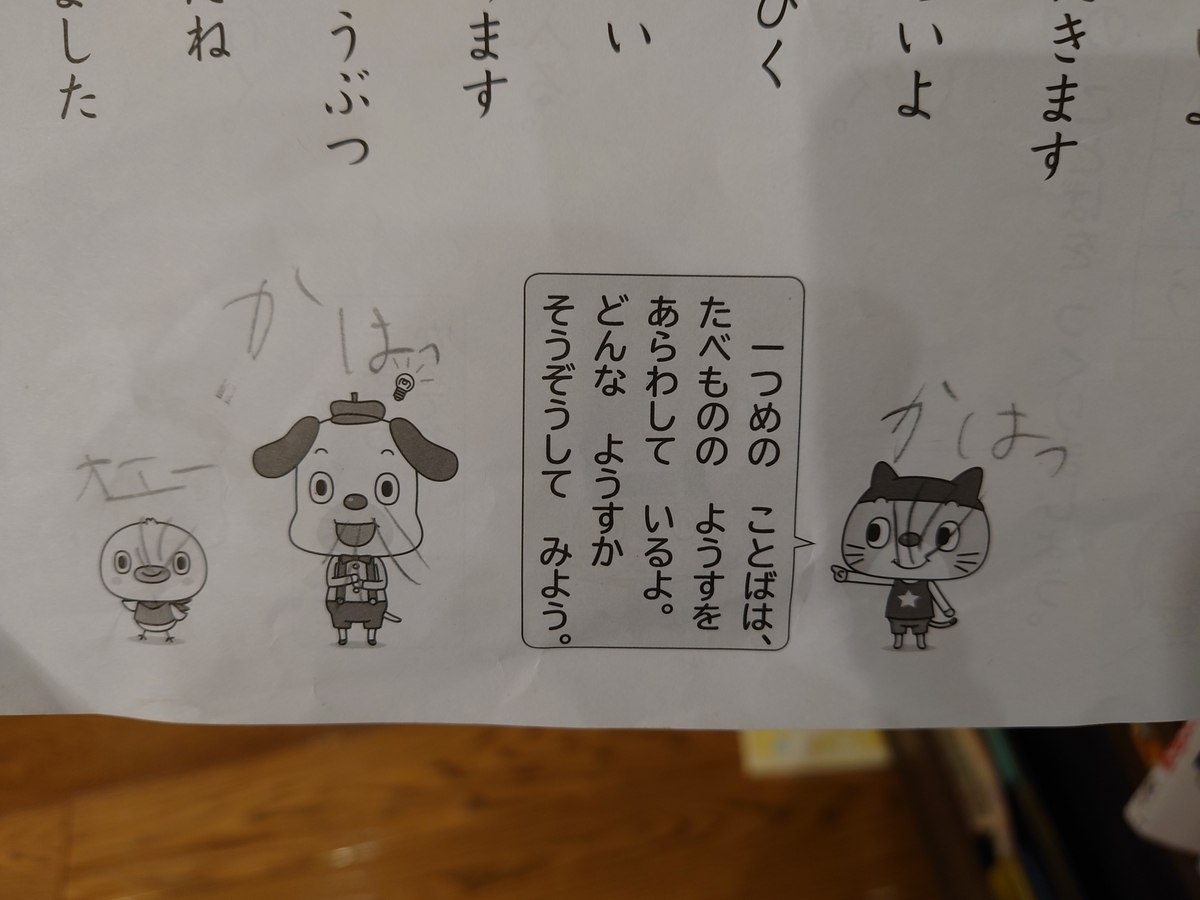 きます
いよ
く
い
ます
うぶつ
ね
ました
かはっ
一つめの ことばは、
たべものの ようすを
あらわして いるよ。
どんな ようすか
そうぞうして みよう。
かはっ